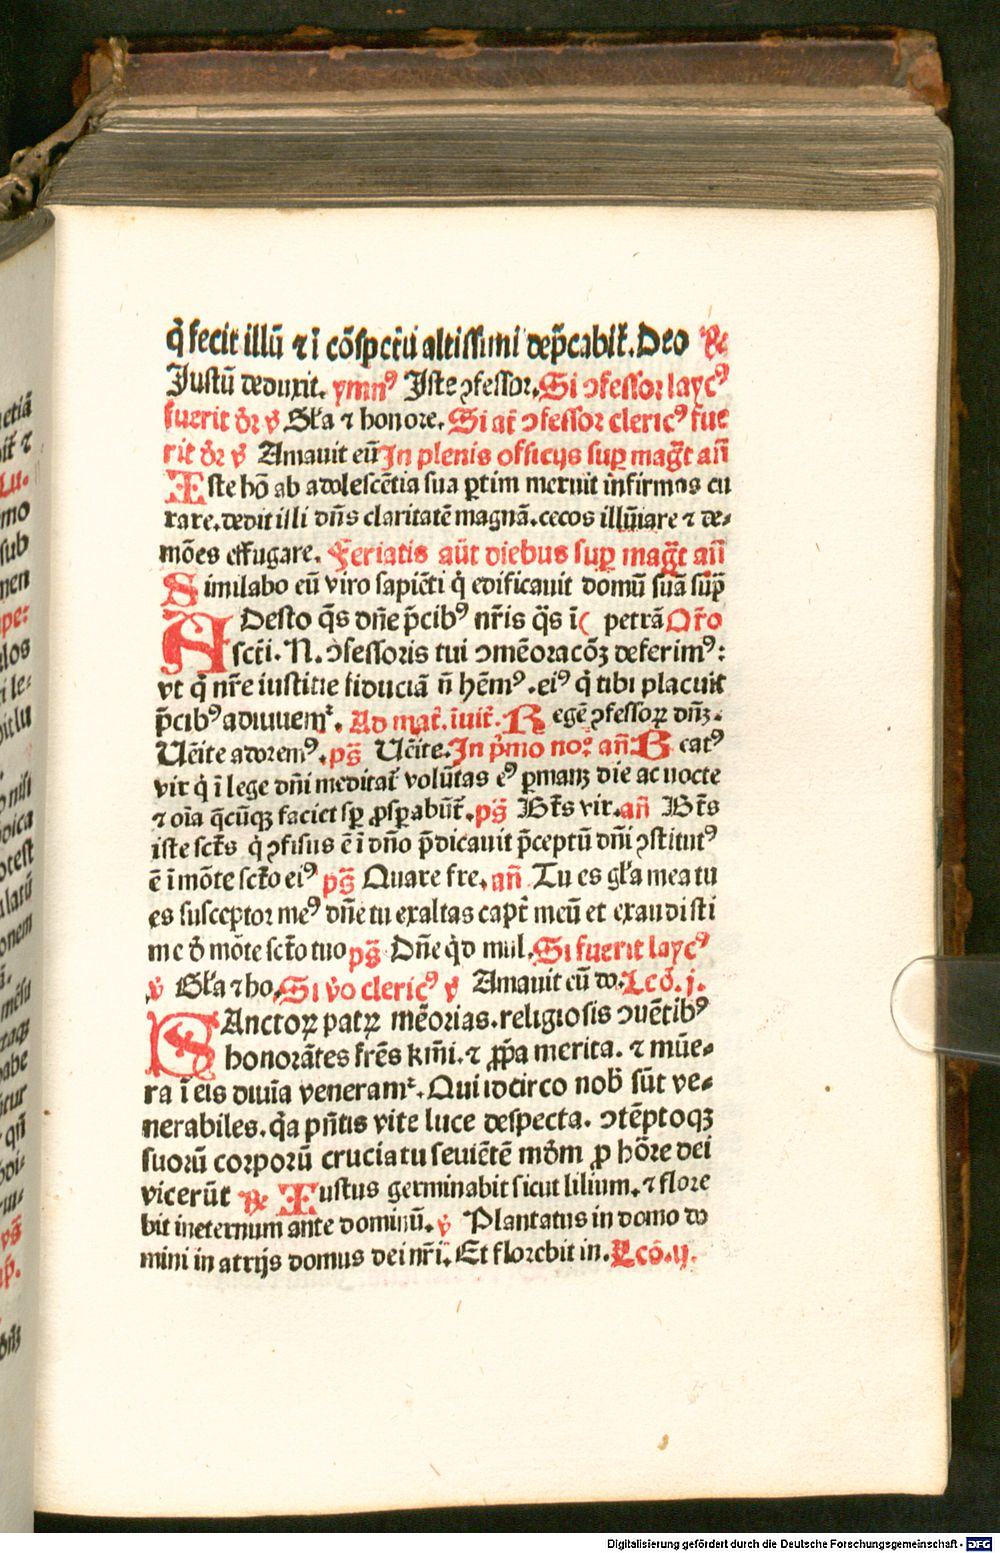 q̇ fecit illū ⁊ ī cōspcṫu altissimi dep̄cabiṫ. Deo ꝶ
Justū deduxit. ymnꝰ Iste ꝯfessor. Si ꝯfessor laycꝰ
fuerit dr̄ ꝟ Gl̄a ⁊ honore. Si aṫ ꝯfessor clericꝰ fue
rit dr̄ ꝟ Amauit eū In plenis officijs suꝑ maḡt an̄
Iste hō ab adolescētia sua ꝑtim meruit infirmos cu
rare. dedit illi dn̄s claritatē magnā. cecos illūiare ⁊ de⸗
mōes effugare. Feriatis aūt diebus suꝑ maḡt an̄
Similabo eū viro sapiēti q̇ edificauit domū suā sup̄
Adesto q̄s dn̄e p̄cibꝰ nr̄is q̄s ī ( petrā Or̄o
scṫi. N. ꝯfessoris tui ꝯmēoracōꝫ deferimꝰ:
vt q̇ nr̄e iustitie fiduciā n̄ hēmꝰ. eiꝰ q̇ tibi placuit
p̄cibꝰ adiuuemᷣ. Ad maṫ. īuiṫ. Regē ꝯfessoꝝ dn̄ꝫ.
Uēite adoremꝰ. ps̄ Uēite. In ṗmo noᷣ. an̄ Beatꝰ
vir q̇ ī lege dn̄i meditaṫ volūtas eꝰ ꝑmanꝫ die ac nocte
⁊ oīa q̄cūqꝫ faciet sꝑ ꝓsꝑabūṫ. ps̄ Bṫs vir. an̄ Bṫs
iste scṫs q̇ ꝯfisus ē ī dn̄o p̄dicauit p̄ceptū dn̄i ꝯstitutꝰ
ē ī mōte scṫo eiꝰ ps̄ Quare fre. an̄ Tu es gl̄a mea tu
es susceptor meꝰ dn̄e tu exaltas capṫ meū et exaudisti
me d̄ mōte scṫo tuo ps̄ Dn̄e q̇d mul. Si fuerit laycꝰ
ꝟ Gl̄a ⁊ ho. Si v̊o clericꝰ ꝟ Amauit eū do. Lcō. j.
SAnctoꝝ patꝝ mēorias. religiosis ꝯuētibꝰ
honorātes fr̄es km̄i. ⁊ ꝓpa merita. ⁊ mūe⸗
ra ī eis diuīa veneramᷣ. Qui idcirco nob̄ sūt ve⸗
nerabiles. q̇a pn̄tis vite luce despecta. ꝯtēptoqꝫ
suorū corporū cruciatu seuiētē mōm ꝓ hōre dei
vicerūt ꝶ Iustus germinabit sicut lilium. ⁊ flore
bit ineternum ante dominū. ꝟ Plantatus in domo do
mini in atrijs domus dei nr̄i. Et florebit in. Lcō. ij.
Digitalisierung gefördert durch die Deutsche Forschungsgemeinschaft - DFG